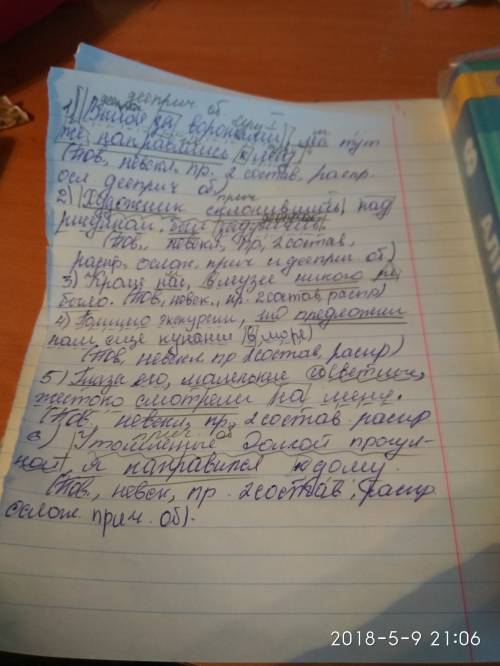 дееприч об
1) [Выйдя за ворота], мы тут
же направились
(Пов, невскл, пр. 2 состав, распр.
осл. дееприч об)
прич
2) Художник склонившись над
рисунком, был
(Пов, невскл, пр, 2состав,
распр, ослож, прич и дееприч об)
3) Кроме нас, в музее никого не
было. (Пов, невск., пр. 2состав, распр)
4) Помимо экскурсии, предложили
нам еще купание в море
(Пов, невскл пр 2состав, распр)
5) Глаза его, маленькие
жестоко смотрели на меня.
(Пов. невскл, пр, 2 состав. распр
прич об
6) Утомленные долгой прогул-
кой, я направился к дому.
(Пов., невск, пр. 2состав, распр
ослож. прич. об).
2018-5-9 21:06